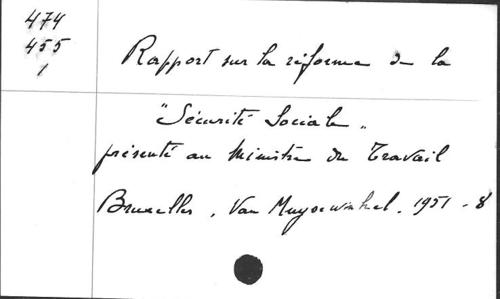 474
455
1
Rapport sur la réforme de la
"Sécurité Sociale"
présenté au Ministre du Travail
Bruxelles, Van Muysewinkel. 1951 - 8